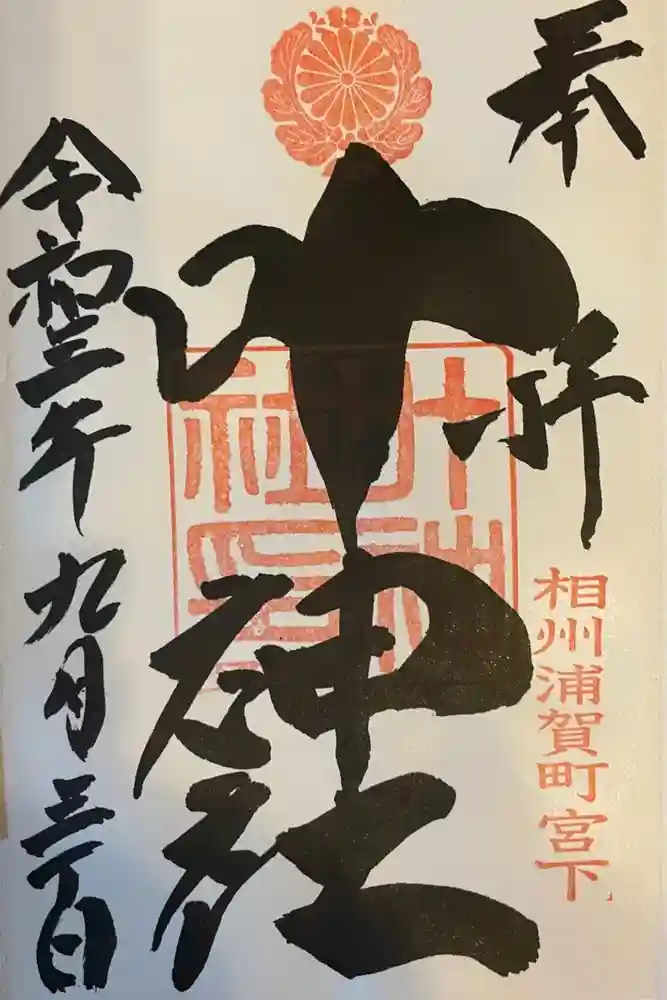 奉拝
相州浦賀町宮下
叶神社
叶神
社印
令和三年九月三十日